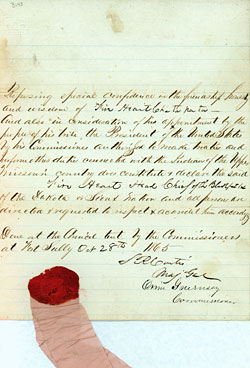 Reposing special confidence in the friendship
and wisdom of Two Heart
and also in consideration of his appointment by the
people of his tribe, the President of the United States
by his Commissioners authorized to make treaties and
perform other duties connected with the Indians of the Upper
Missouri country does constitute & declare the said
Two Heart Head Chief of the
of the Dakota or Sioux Nation and all persons are
directed & requested to respect & accredit him accordingly
Done at the Council tent by the Commissioners
at Fort Sully Oct 28th 1865
S R Curtis
Maj Genl
Orrin Guernsey
Commissioner